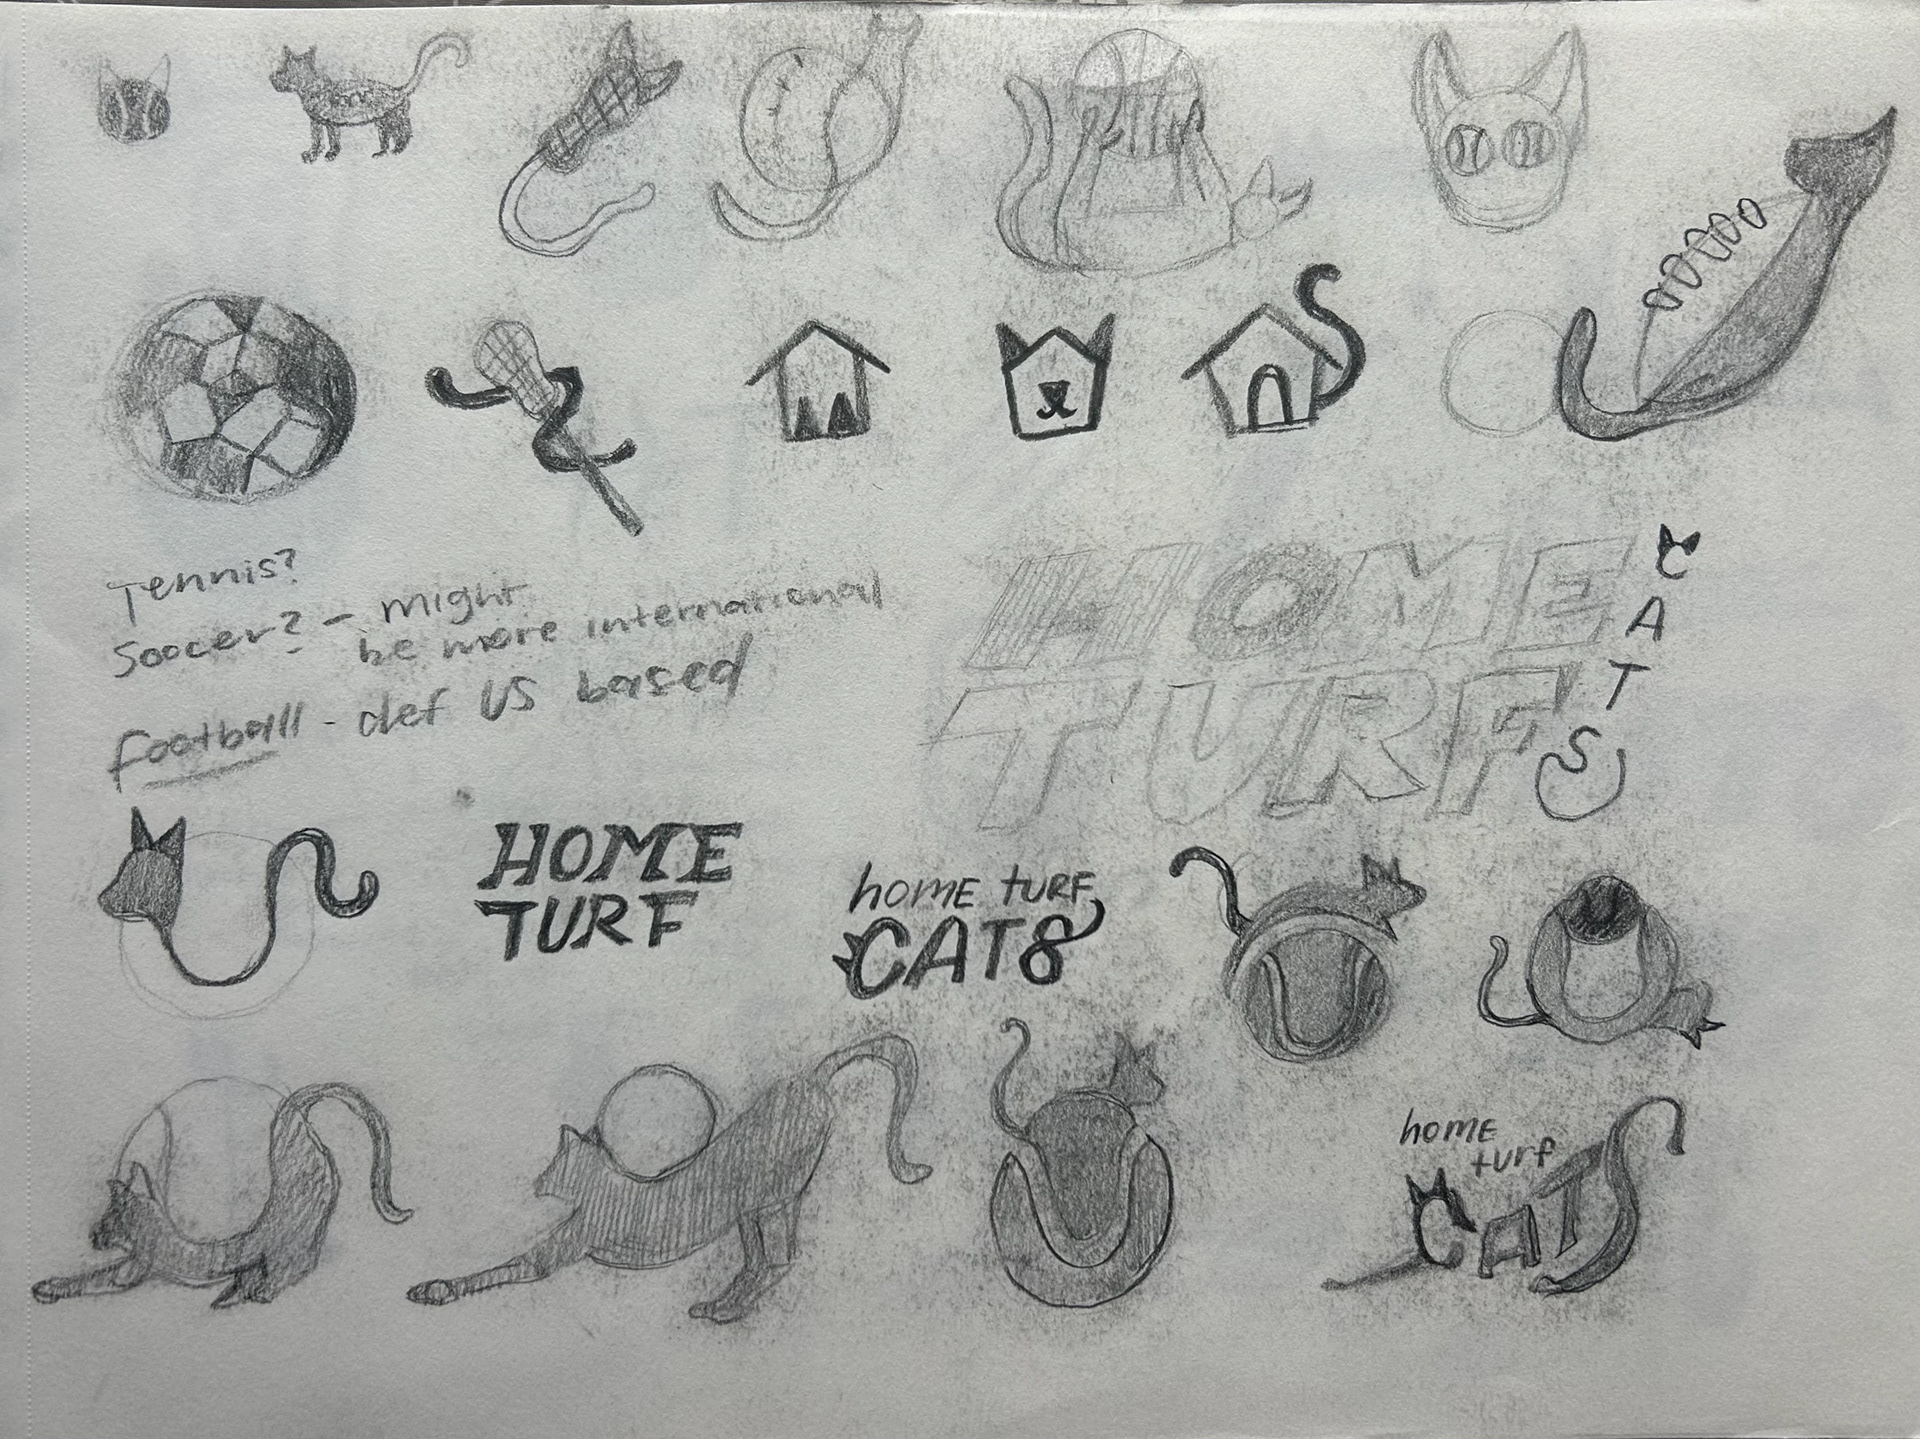 Tennis?
Soccer? - might
be more international
football - def US based
HOME
TURF
CATS
HOME
TURF
home TURF
CATS
home
turf
CATS